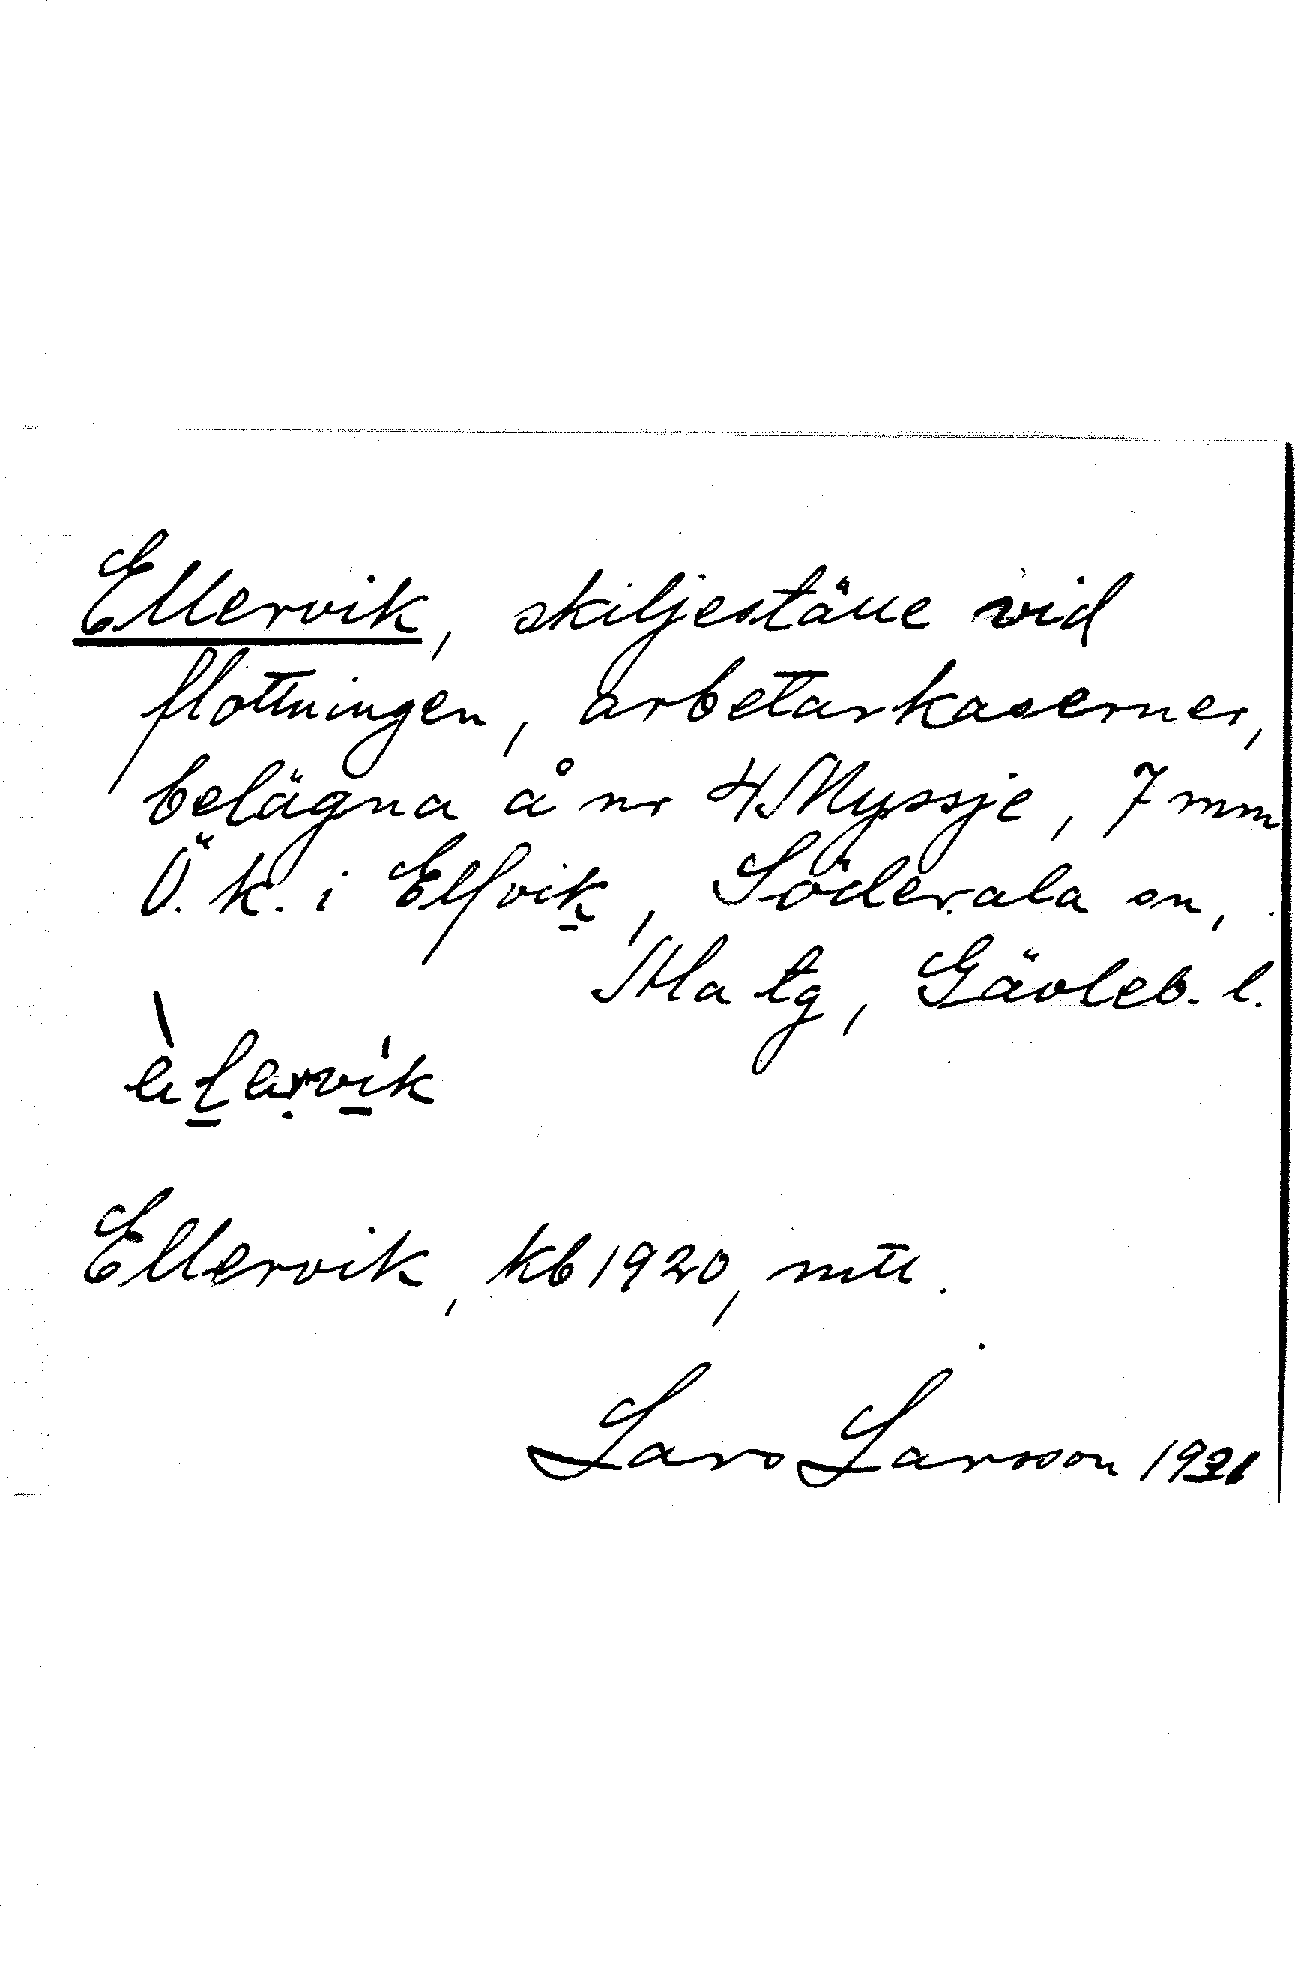 Ellervik, skiljeställe vid
flottningen, arbetarkaserner,
belägna å nr 4 Myssje, 7 mm
Ö. k. i Elfvik, Söderala sn,
Ala tg, Gävleb. l.
èlervik
Ellervik, kb 1920, mtl.
Lars Larsson 1931